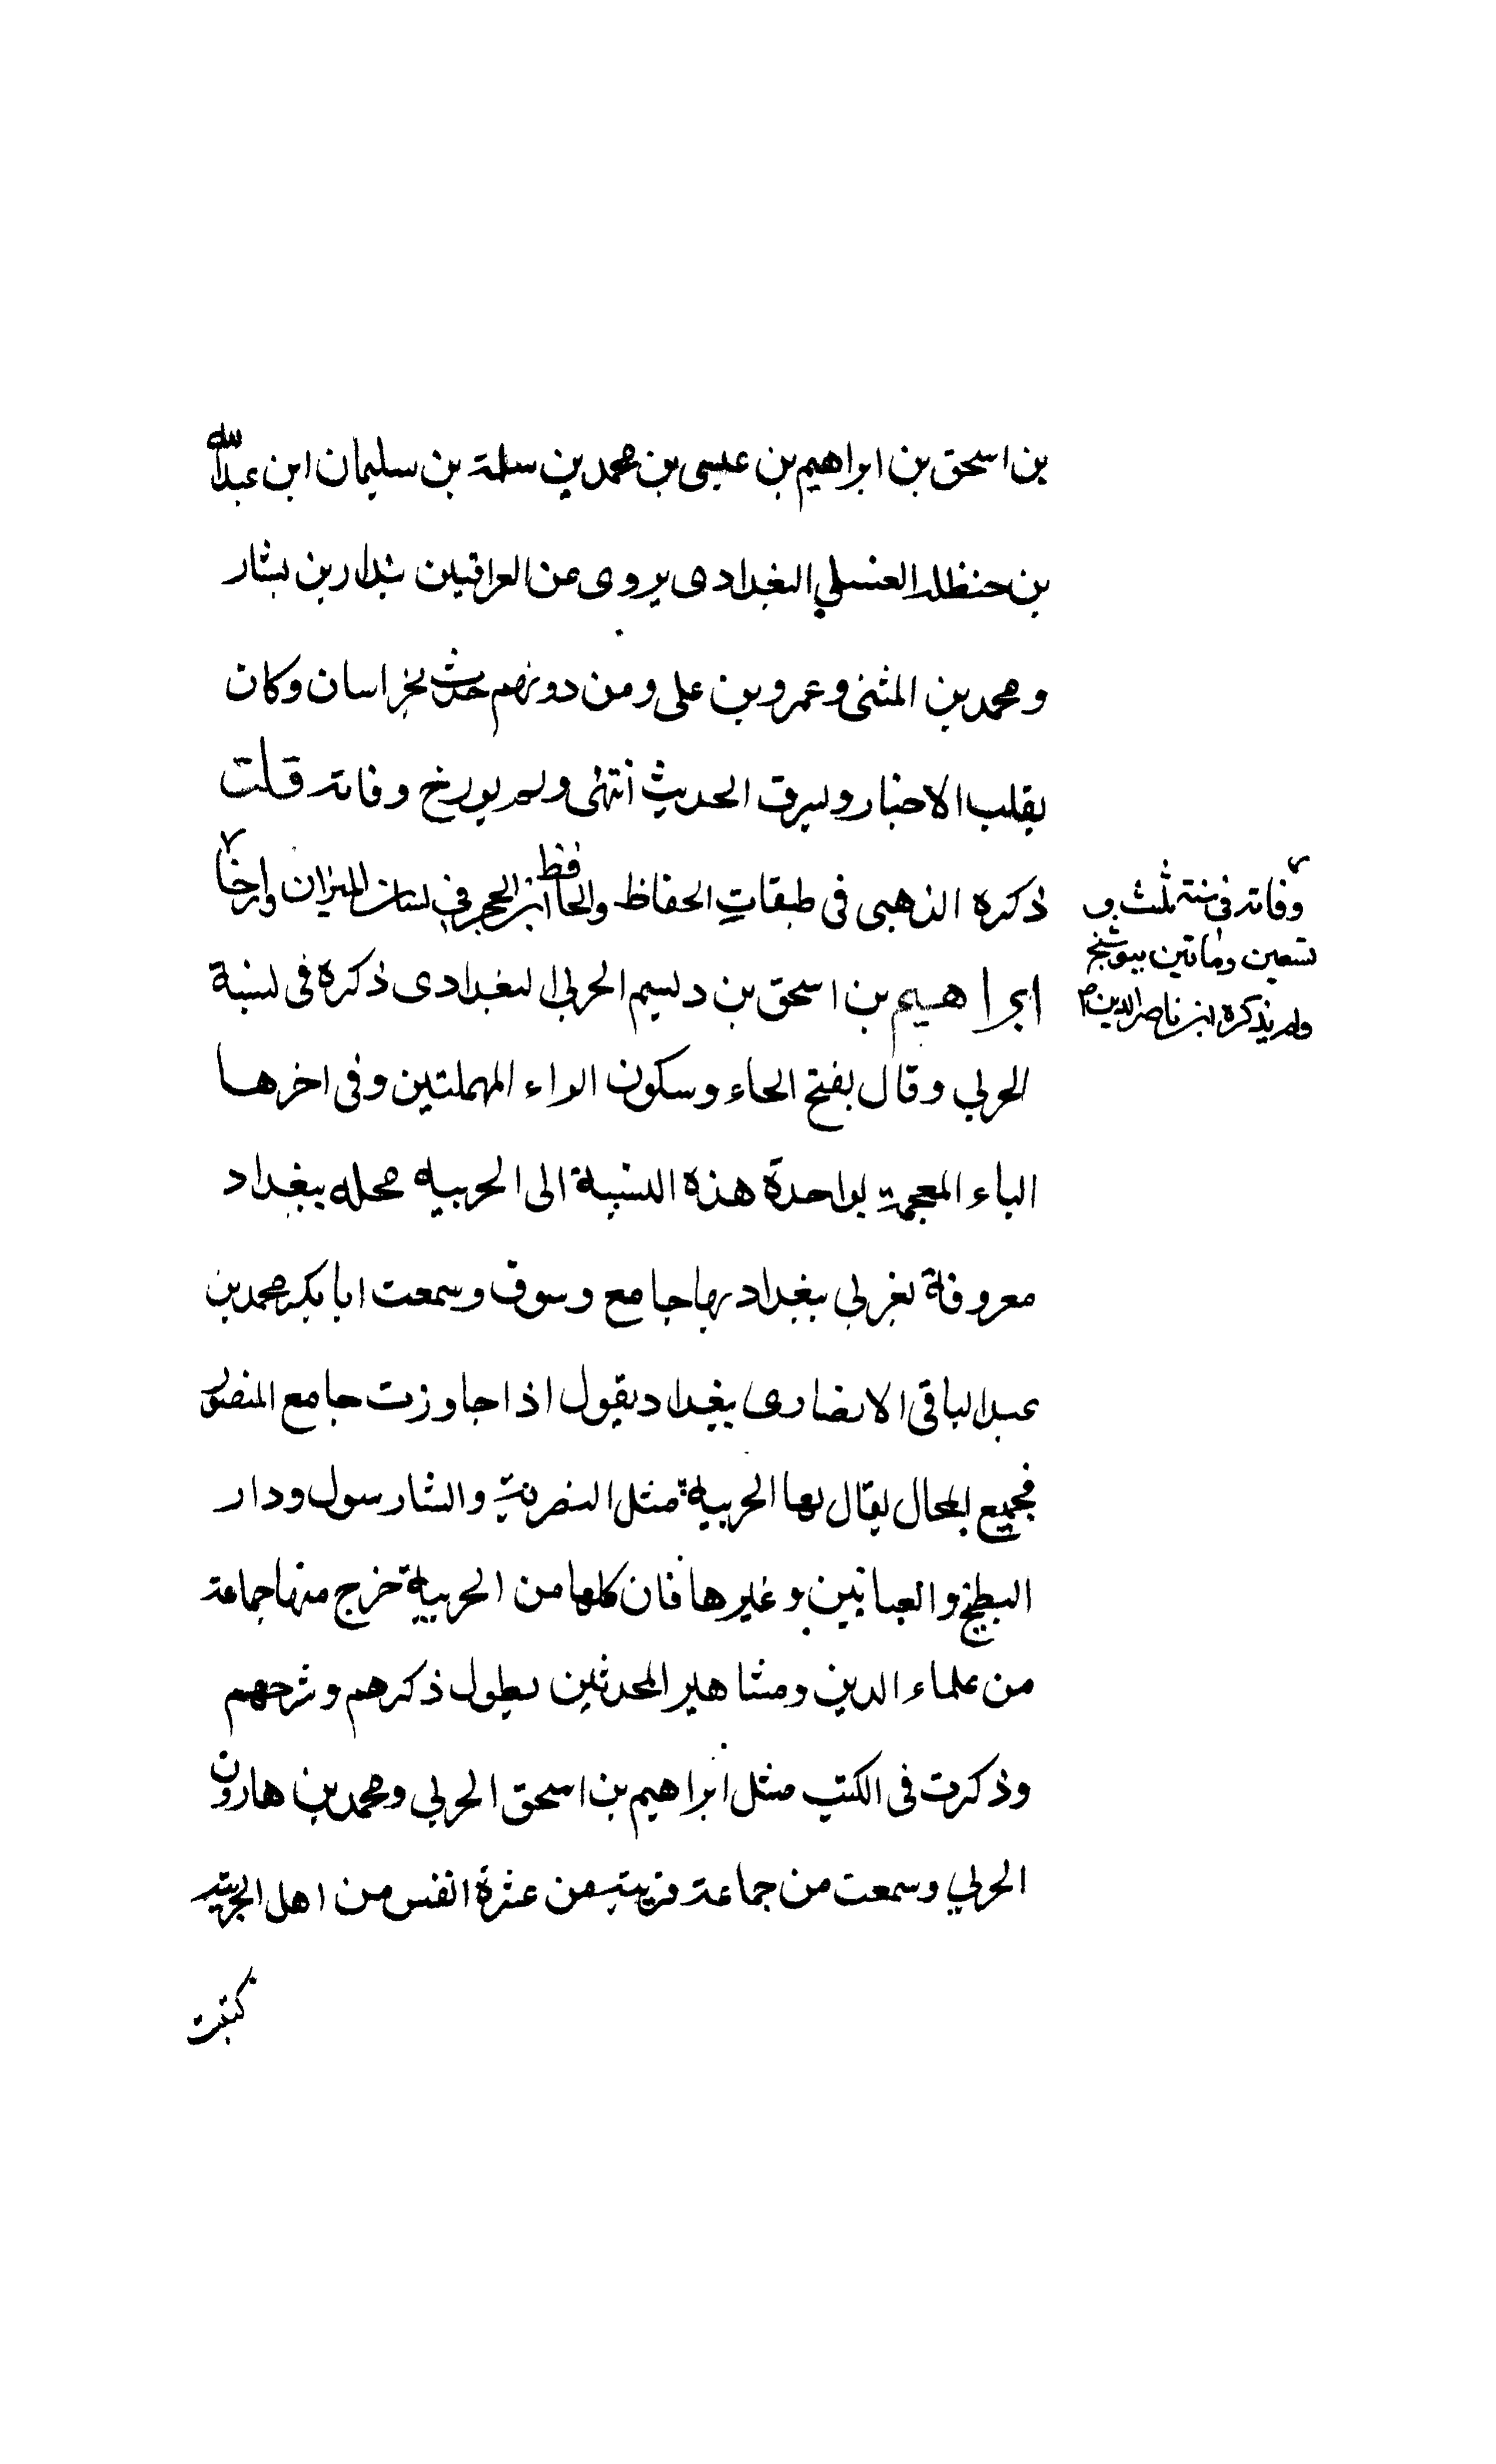 بن اسحق بن ابراهيم بن عيسى بن محمد بن سلمة بن سليمان ابن عبد الله
بن حنظله الغسيلي البغدادى يروى عن العراقيين بندار بن بشار
ومحمد بن المثنى وعمرو بن على ومن دونهم حدث بخراسان وكان
يقلب الاخبار ويسرق الحديث انتهى ولم يورخ وفاته قلت
ذكره الذهبى فى طبقات الحفاظ والحافظ ابن الحجر فى لسان الميزان وارخا
وفاته فى سنة ثلث و
تسعين وماتين ببوشنج
ولم يذكره ابن ناصر الدين
ابراهيم بن اسحق بن ديسم الحربي البغدادى ذكره فى نسبة
الحربي وقال بفتح الحاء وسكون الراء المهملتين وفى اخرها
الباء المعجمة بواحدة هذه النسبة الى الحربيه محله ببغداد
معروفة بغربي بغداد بها جامع وسوق وسمعت ابا بكر محمد بن
عبد الباقى الانصارى ببغداد يقول اذا جاوزت جامع المنصور
فجميع المحال يقال لها الحربية مثل النصرية والشارسول ودار
البطيخ والعبانيين وغيرها فان كلها من الحربية خرج منها جماعة
من علماء الدين ومشاهير المحدثين يطول ذكرهم وشرحهم
وذكرت فى الكتب مثل ابراهيم بن اسحق الحربي ومحمد بن هارون
الحربي وسمعت من جماعة قريبة من عشرة انفس من اهل الحربية
كتبت